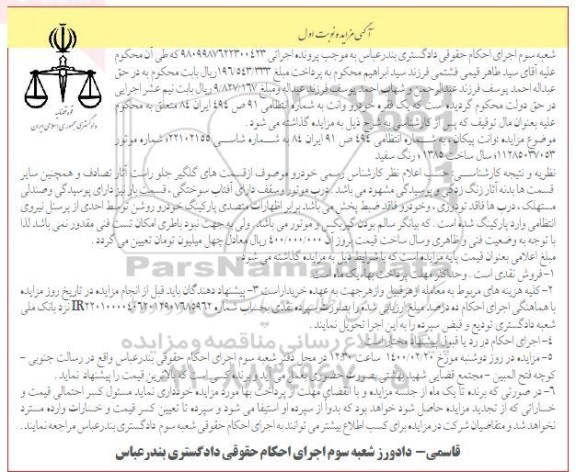 آگهی مزایده نوبت اول
شعبه سوم اجرای احکام حقوقی دادگستری بندرعباس به موجب پرونده اجرائی ۹۸۰۹۹۸۷۶۲۲۳۰۰۴۲۳ که طی آن محکوم
علیه آقای سید طاهر قیمی فشتمی فرزند سید ابراهیم محکوم به پرداخت مبلغ ۱۹۶/۵۴۳/۳۳۳ ریال بابت محکوم به در حق
عبداله احمد یوسف فرزند عبدالرحمن و شهاب احمد یوسف فرزند عبداله ومبلغ ۹/۸۲۷/۱۶۷ ریال بابت نیم عشر اجرایی
در حق دولت محکوم گردیده است که یک فقره خودرو وانت به شماره انتظامی ۹۱ ص ۴۹۴ ایران ۸۴ متعلق به محکوم
علیه بعنوان مال توقیف که پس از کارشناسی به شرح ذیل به مزایده گذاشته می شود.
موضوع مزایده :وانت پیکان به شماره انتظامی ۴۹۴ ص ۹۱ ایران ۸۴ به شماره شاسی ۲۲۱۰۲۱۵۵ شماره موتور
۱۱۲۸۵۰۳۷۰۵۳ سال ساخت ۱۳۸۵ رنگ سفید
نظریه و نتیجه کارشناسی : حسب اعلام نظر کارشناس رسمی خودرو موصوف ازقسمت های گلگیر جلو راست آثار تصادف و همچنین سایر
قسمت ها بدنه آثار زنگ زدگی و پوسیدگی مشهود می باشد . درب موتور وسقف دارای آفتاب سوختگی ، قسمت بار نیز دارای پوسیدگی وصندلی
مستهلک ، درب ها فاقد تودوزی ، وخودرو فاقد ضبط پخش می باشد برابر اظهارات متصدی پارکینگ خودرو روشن توسط احدی از پرسنل نیروی
انتظامی وارد پارکینگ شده است . که بیانگر سالم بودن گیربکس و موتور می باشد، ولی به جهت نبود باطری امکان تست فنی مقدور نمی باشد لذا
با توجه به وضعیت فنی و ظاهری وسال ساخت قیمت بروز آن ۴۰۰/۰۰۰/۰۰۰ ریال معادل چهل میلیون تومان تعیین می گردد .
مبلغ اعلامی بعنوان قیمت پایه مزایده است که با شرایط ذیل به مزایده گذاشته می شود.
۱- فروش نقدی است . وحداکثر مهلت پرداخت بها یک ماه است
۲- کلیه هزینه های مربوط به معامله ازهر قبیل وازهرجهت به عهده خریداراست ۳- پیشنهاد دهندگان باید قبل از انجام مزایده در تاریخ روز مزایده
با هماهنگی اجرای احکام ده درصد مبلغ ارزیابی شده را بصورت سپرده نقدی بحساب شماره نزد بانک ملی
شعبه دادگستری تودیع و قبض سپرده را به این اجرا تحویل نمایند .
۴- اجرای احکام در رد یا قبول پیشنهاد مختار است
۵- مزایده در روز دوشنبه مورخ ۱۴۰۰/۰۲/۲۰ ساعت ۱۲:۳۰ در محل دفتر شعبه سوم اجرای احکام حقوقی بندرعباس واقع در رسالت جنوبی -
کوچه فتح المبین - مجتمع قضایی شهید بهشتی بصورت حضوری بعمل می آید و برنده کسی است که بالاترین قیمت را پیشنهاد نماید .
۶- در صورتی که برنده تا یک ماه از جلسه مزایده و با انقضای مهلت از پرداخت بها مورد مزایده خودداری نماید مسئول کسر احتمالی قیمت و
خساراتی که از تجدید مزایده حاصل شود خواهد بود که بدوا از سپرده او استیفا می شود و سپرده تا تعیین کسر قیمت و خسارات وارده مسترد
نخواهد شد و متقاضیان شرکت در مزایده برای کسب اطلاع بیشتر می توانند به اجرای احکام حقوقی شعبه سوم دادگستری بندرعباس مراجعه نمایند.
قاسمی- دادورز شعبه سوم اجرای احکام حقوقی دادگستری بندرعباس